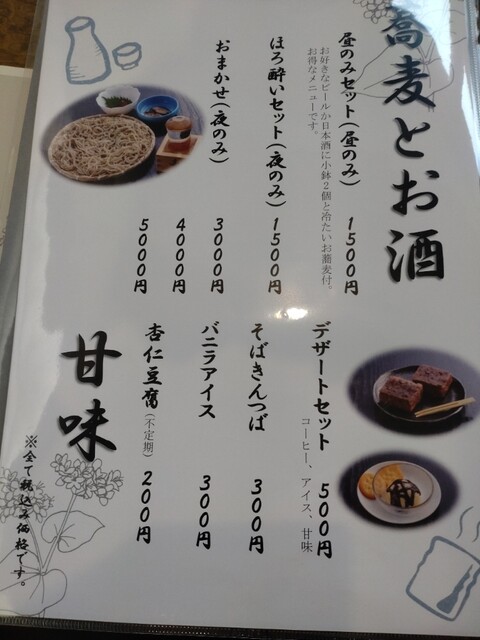 蕎麦とお酒
昼のみセット(昼のみ) 1500円
お好きなビールか日本酒に小鉢2個と冷たいお蕎麦付。
お得なメニューです。
ほろ酔いセット(夜のみ) 1500円
おまかせ(夜のみ) 3000円
4000円
5000円
デザートセット 500円
コーヒー、アイス、甘味
そばきんつば 300円
バニラアイス 300円
杏仁豆腐(不定期) 200円
甘味
※全て税込み価格です。